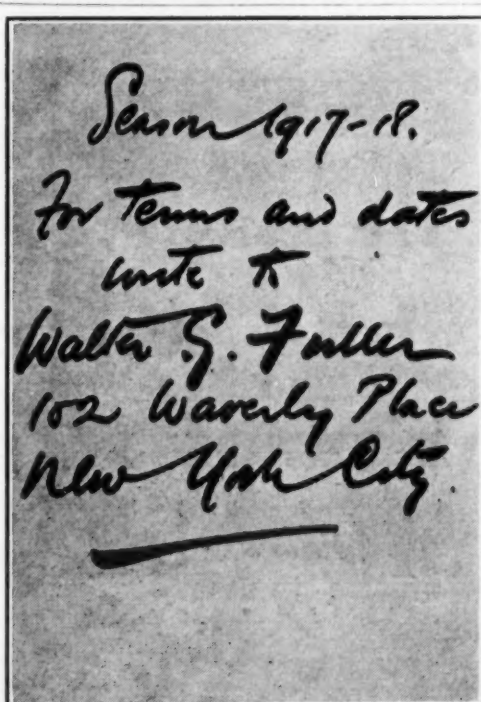 Season 1917-18.
For terms and dates
write to
Walter G. Fuller
102 Waverly Place
New York City